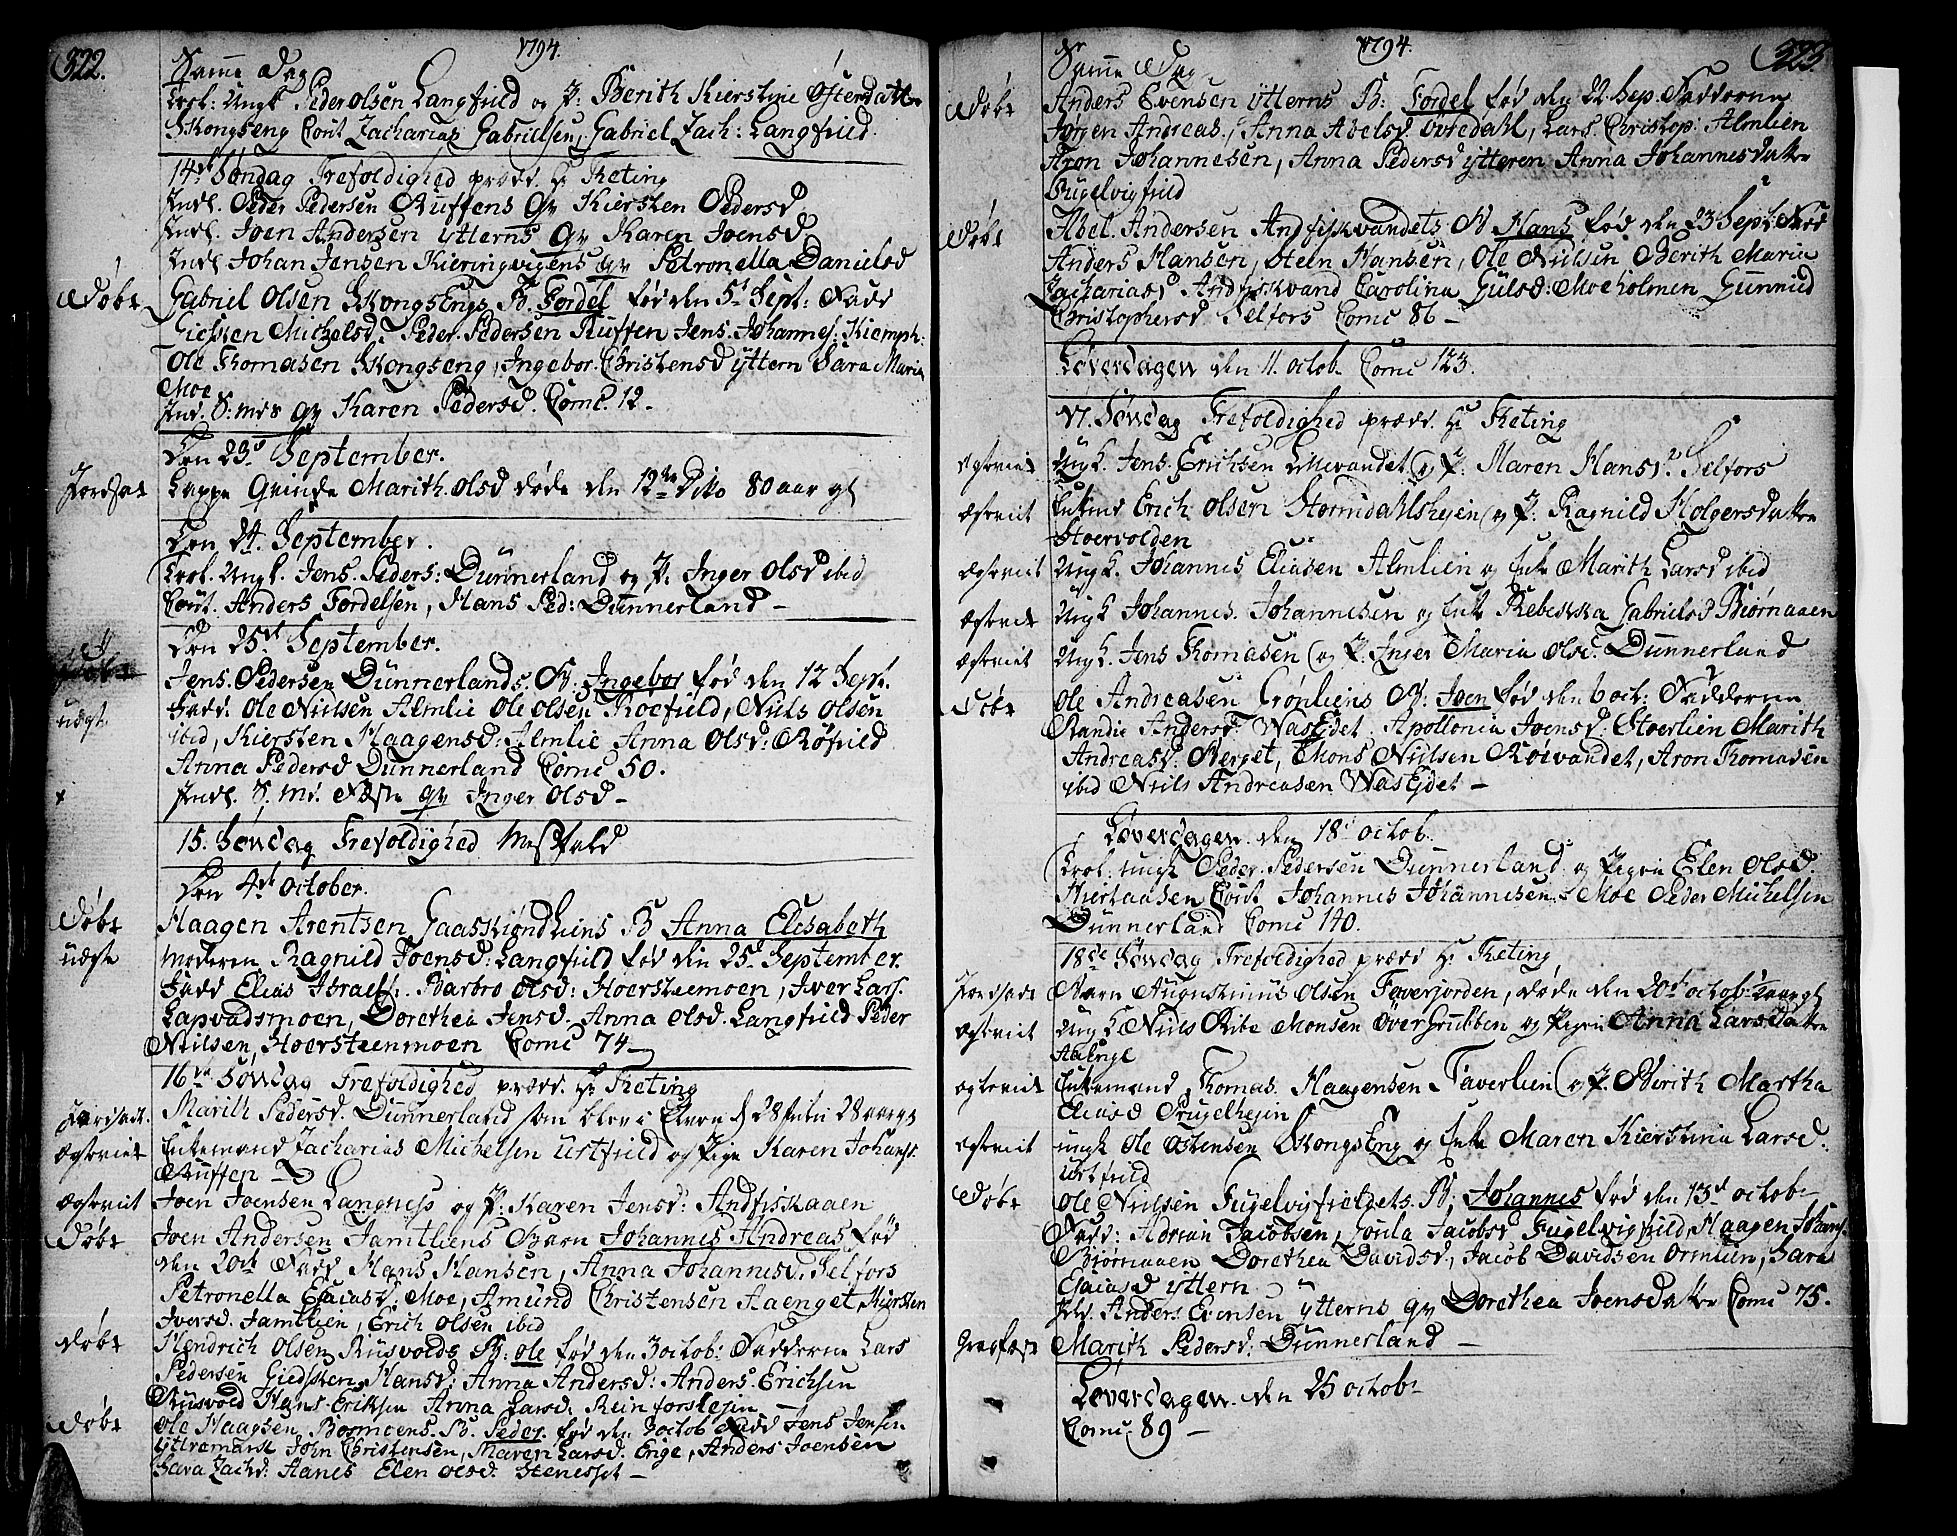 322.
1794.
Samme Dag
Trol: Ungk Peder olsen Langfield og P: Berith Kierstine Ostersdatter
Skongseng Cout Zacharias Gabrielsen, Gabriel Zach: Langfield.
14de Søndag Trefoldighed præd. Hr Keting
Indl. Peder Pedersen Ruffens Qv Kiersten Pedersd
Indl. Joen Andersen ytterns Qv Karen Joensd
Indl Johan Jensen Kieringvigens Qv Petronella Danielsd
Døbt Gabriel Olsen Skongsengs B. Tordel fød den 5t Sept: Fadd
Giertsen Michelsd. Peder Pedersen Ruffen Jens Johannes: Kiemph:
Ole Thomasen Skongseng, Ingebor. Christensd yttern Sara Maria
Moe
Ind. S: mds Qv Karen Pedersd. Comc. 12.
Den 23d September.
Jordfæst Lappe Qvinde Marith. Olsd døde den 12te Dito 80 aar gl
Den 24. September.
Trol. Ungk. Jens. Peders: Dunnerland og P. Inger Olsd ibid
Cout. Anders Tordelsen, Hans Ped: Dunnerland —
Den 25de September.
Jens. Pedersen Dunnerlands. B. Ingebor fød den 12 Sept.
udgt. Fadd. Ole Nielsen Almlie Ole Olsen Roefield, Niels Olsen
ibid, Kiersten Haagensd: Almlie Anna Olsd: Røfield
Anna Pedersd Dunnerland Comc 50.
x Indl. S. md. Næst Qv Inger Olsd —
15. Søndag Trefoldighed Messefald
Den 4de October.
Døbt Haagen Arentsen Gaaskiøndliens B Anna Elisabeth
udgte moderen Ragnild Joensd: Langfield fød den 25de September.
Fadd Elias Israels: Barbro Olsd: Hoersteenmoen, Iver Lars.
Lapvadsmoen, Dorethea Jensd. Anna Olsd. Langfield Peder
Nielsen, Hoersteenmoen Comc 74.
16de Søndag Trefoldighed præd. Hr Keting
Jordfæst. Marith Pedersd. Dunnerland som blev i Elven d 28 28 aar gl
Ægteviet Enkemand Zacharias Michelsen Urtfield og Pige Karen Johans:
Ruffen
Ægteviet Joen Joensen Langness og P: Karen Jensd: Andfiskaaen
Døbt Joen Andersen Jamtliens Barn Johannes Andreas fød
den 20de Fadd Hans Hansen, Anna Johannesd. Selfors
Petronella Esaiasd. Moe, Amund Christensen Aaenget Kiersten
Iversd. Jamtlien, Erich Olsen ibid
Døbt Hendrich Olsen Rusvolds B: Ole fød den 3 octob: Fadderne Lars
Pedersen Giedsken, Hansd: Anna Andersd: Anders. Erichsen
Rusvold Hans Eriksen Anna Larsd. Reinforshejen —
Døbt Ole Haagsen Bosmoens B. Peder fød den 3 octob Fadd Jens Jensen
Ittremanse John Christensen, Maren Larsd. Enge, Anders Joensen
Sara Zachd. Aanes Elen Olsd. Stenesset —
1794.
323.
Samme Dag
Døbt Anders Evensen ytterns B: Tordel fød den 22 Sep. Fadderne
Jørgen Andreas., Anna Abelsd Øvredahl, Lars Christop: Almlien
Aron Johannesen, Anna Pedersd ytteren Anna Johannesdatter
Fugelvigfield
Døbt Abel Andersen Andfiskvandets B Hans fød den 23 Sept: Fadd
Anders Hansen, Steen Hansen, Ole Nielsen Berith Maria
Zachariasd Andfiskvand Carolina Gulsd: Moeholmen Gunnild
Christophersd Selfors Comc 86 —
Løverdagen den 11. octob. Comc 123.
17. Søndag Trefoldighed præd. Hr Keting
Ægteviet Ungk. Jens. Erichsen Lillevandet og P. Maren Hansd. Selfors
Ægteviet Enkemd Erich Olsen Stormdahlshejen og P. Ragnild Holgersdatter
Stoervolden
Ægteviet Ungk. Johannes Eliasen Almlien og Enke Marith Larsd ibid
Ægteviet Ungk Johannes. Johannesen og Enke Rebekka Gabrielsd Biørnaaen
Ægteviet Ungk. Jens Thomasen og P. Inger Maria Olsd. Dunnerland
Døbt Ole Andreasen Grønliens B: Joen fød den 6 oct: Fadderne
Randie Andersd. Wasejdet. Apollonia Joensd: Stoerlien Marith
Andreasd. Berget, Mons Nielsen Røevandet, Aron Thomasen
ibid Niels Andreasen Wasejdet —
Løverdagen den 18 octob.
Trol. Ungk Peder. Pedersen Dunnerland og Pigen Elen Olsd.
Cout Johannes Johannesen. Moe Peder Michelsen
Dunnerland Comc 140.
18de Søndag Trefoldighed præd Hr Keting
Jordfæst Barn Augustinus Olsen Tøverjorden, døde den 20de octob:
Ægteviet Ungk Niels Ribe Monsen Over Grubben og Pigen Anna Larsdatter
Aaenge
Ægteviet Enkemand Thomas. Haagensen Taverlien og P. Berith Martha
Eliasd Fugelhejen
Ægteviet Ungk Ole Ostensen Skongseng og Enke Maren Kierstina Larsd.
Urtfield
Døbt Ole Nielsen Fugelvigfieldets. B. Johannes fød den 13d octob
Fadd: Adrian Jacobsen, Goula Jacobsd Fugelvigfield, Haagen Johans.
Biørnaaen Dorethea Davidsd., Jacob Davidsen Ormlien, Sara
Esaiasd yttern
Indl. Anders Evensen ytterns Qv Dorethea Joensdatter Comc 75.
Marith Pedersd. Dunnerland —
Løverdagen den 25 octob
Comc. 89 —